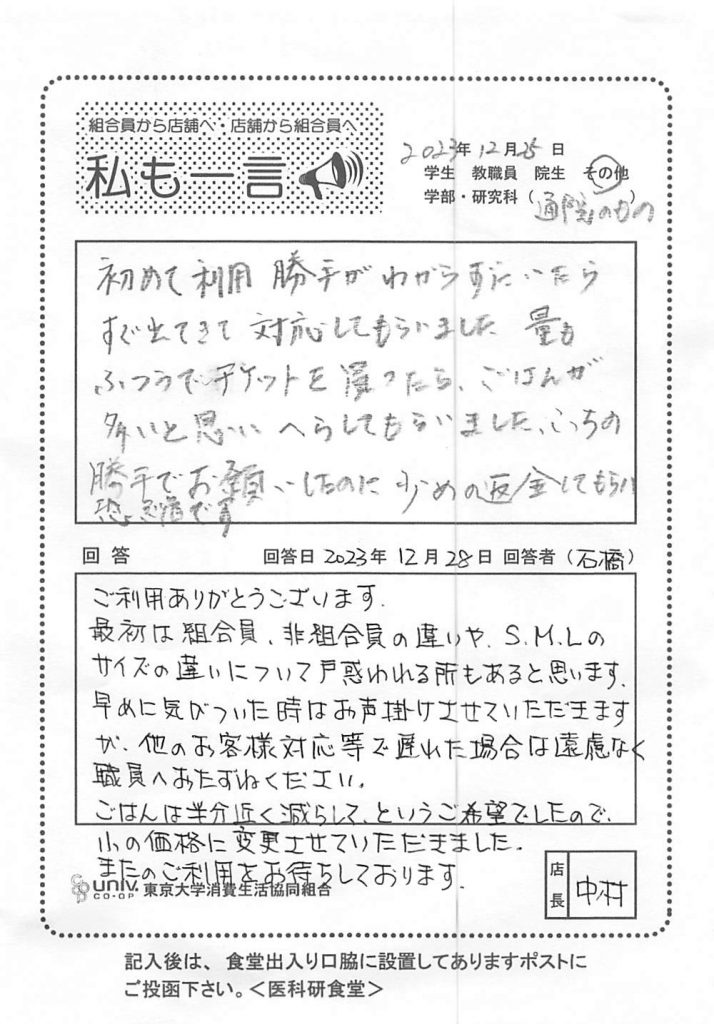 組合員から店舗へ・店舗から組合員へ
私も一言
2023年12月25日
学生 教職員 院生 その他
学部・研究科（通院のもの）
初めて利用 勝手がわからずにいたら
すぐ出てきて 対応してもらいました 量も
ふつうでチケットを買ったら、ごはんが
多いと思い へらしてもらいました、こっちの
勝手でお願いしたのに 少めの返金してもらい
恐縮です
回答 回答日 2023年 12月 28日 回答者（石橋）
ご利用ありがとうございます.
最初は組合員、非組合員の違いや、S.M.Lの
サイズの違いについて戸惑われる所もあると思います.
早めに気がついた時はお声掛けさせていただきます
が、他のお客様対応等で遅れた場合は遠慮なく
職員へおたずねください.
ごはんは半分近く減らして、というご希望でしたので、
小の価格に変更させていただきました.
またのご利用をお待ちしております.
univ. CO-OP 東京大学消費生活協同組合
店長 中村
記入後は、食堂出入り口脇に設置してありますポストに
ご投函下さい。＜医科研食堂＞